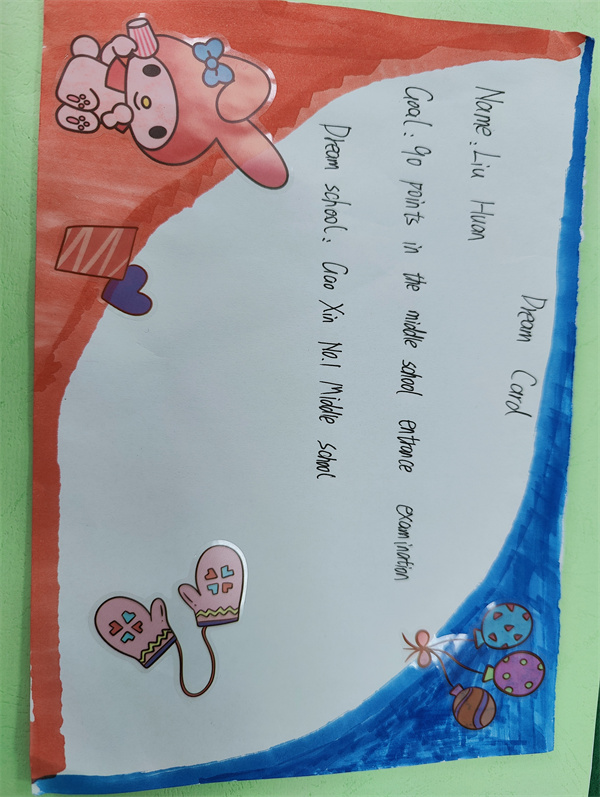 Dream Card
Name: Liu Huan
Goal: 90 points in the middle school entrance examination
Dream school: Gao Xin No.1 Middle school